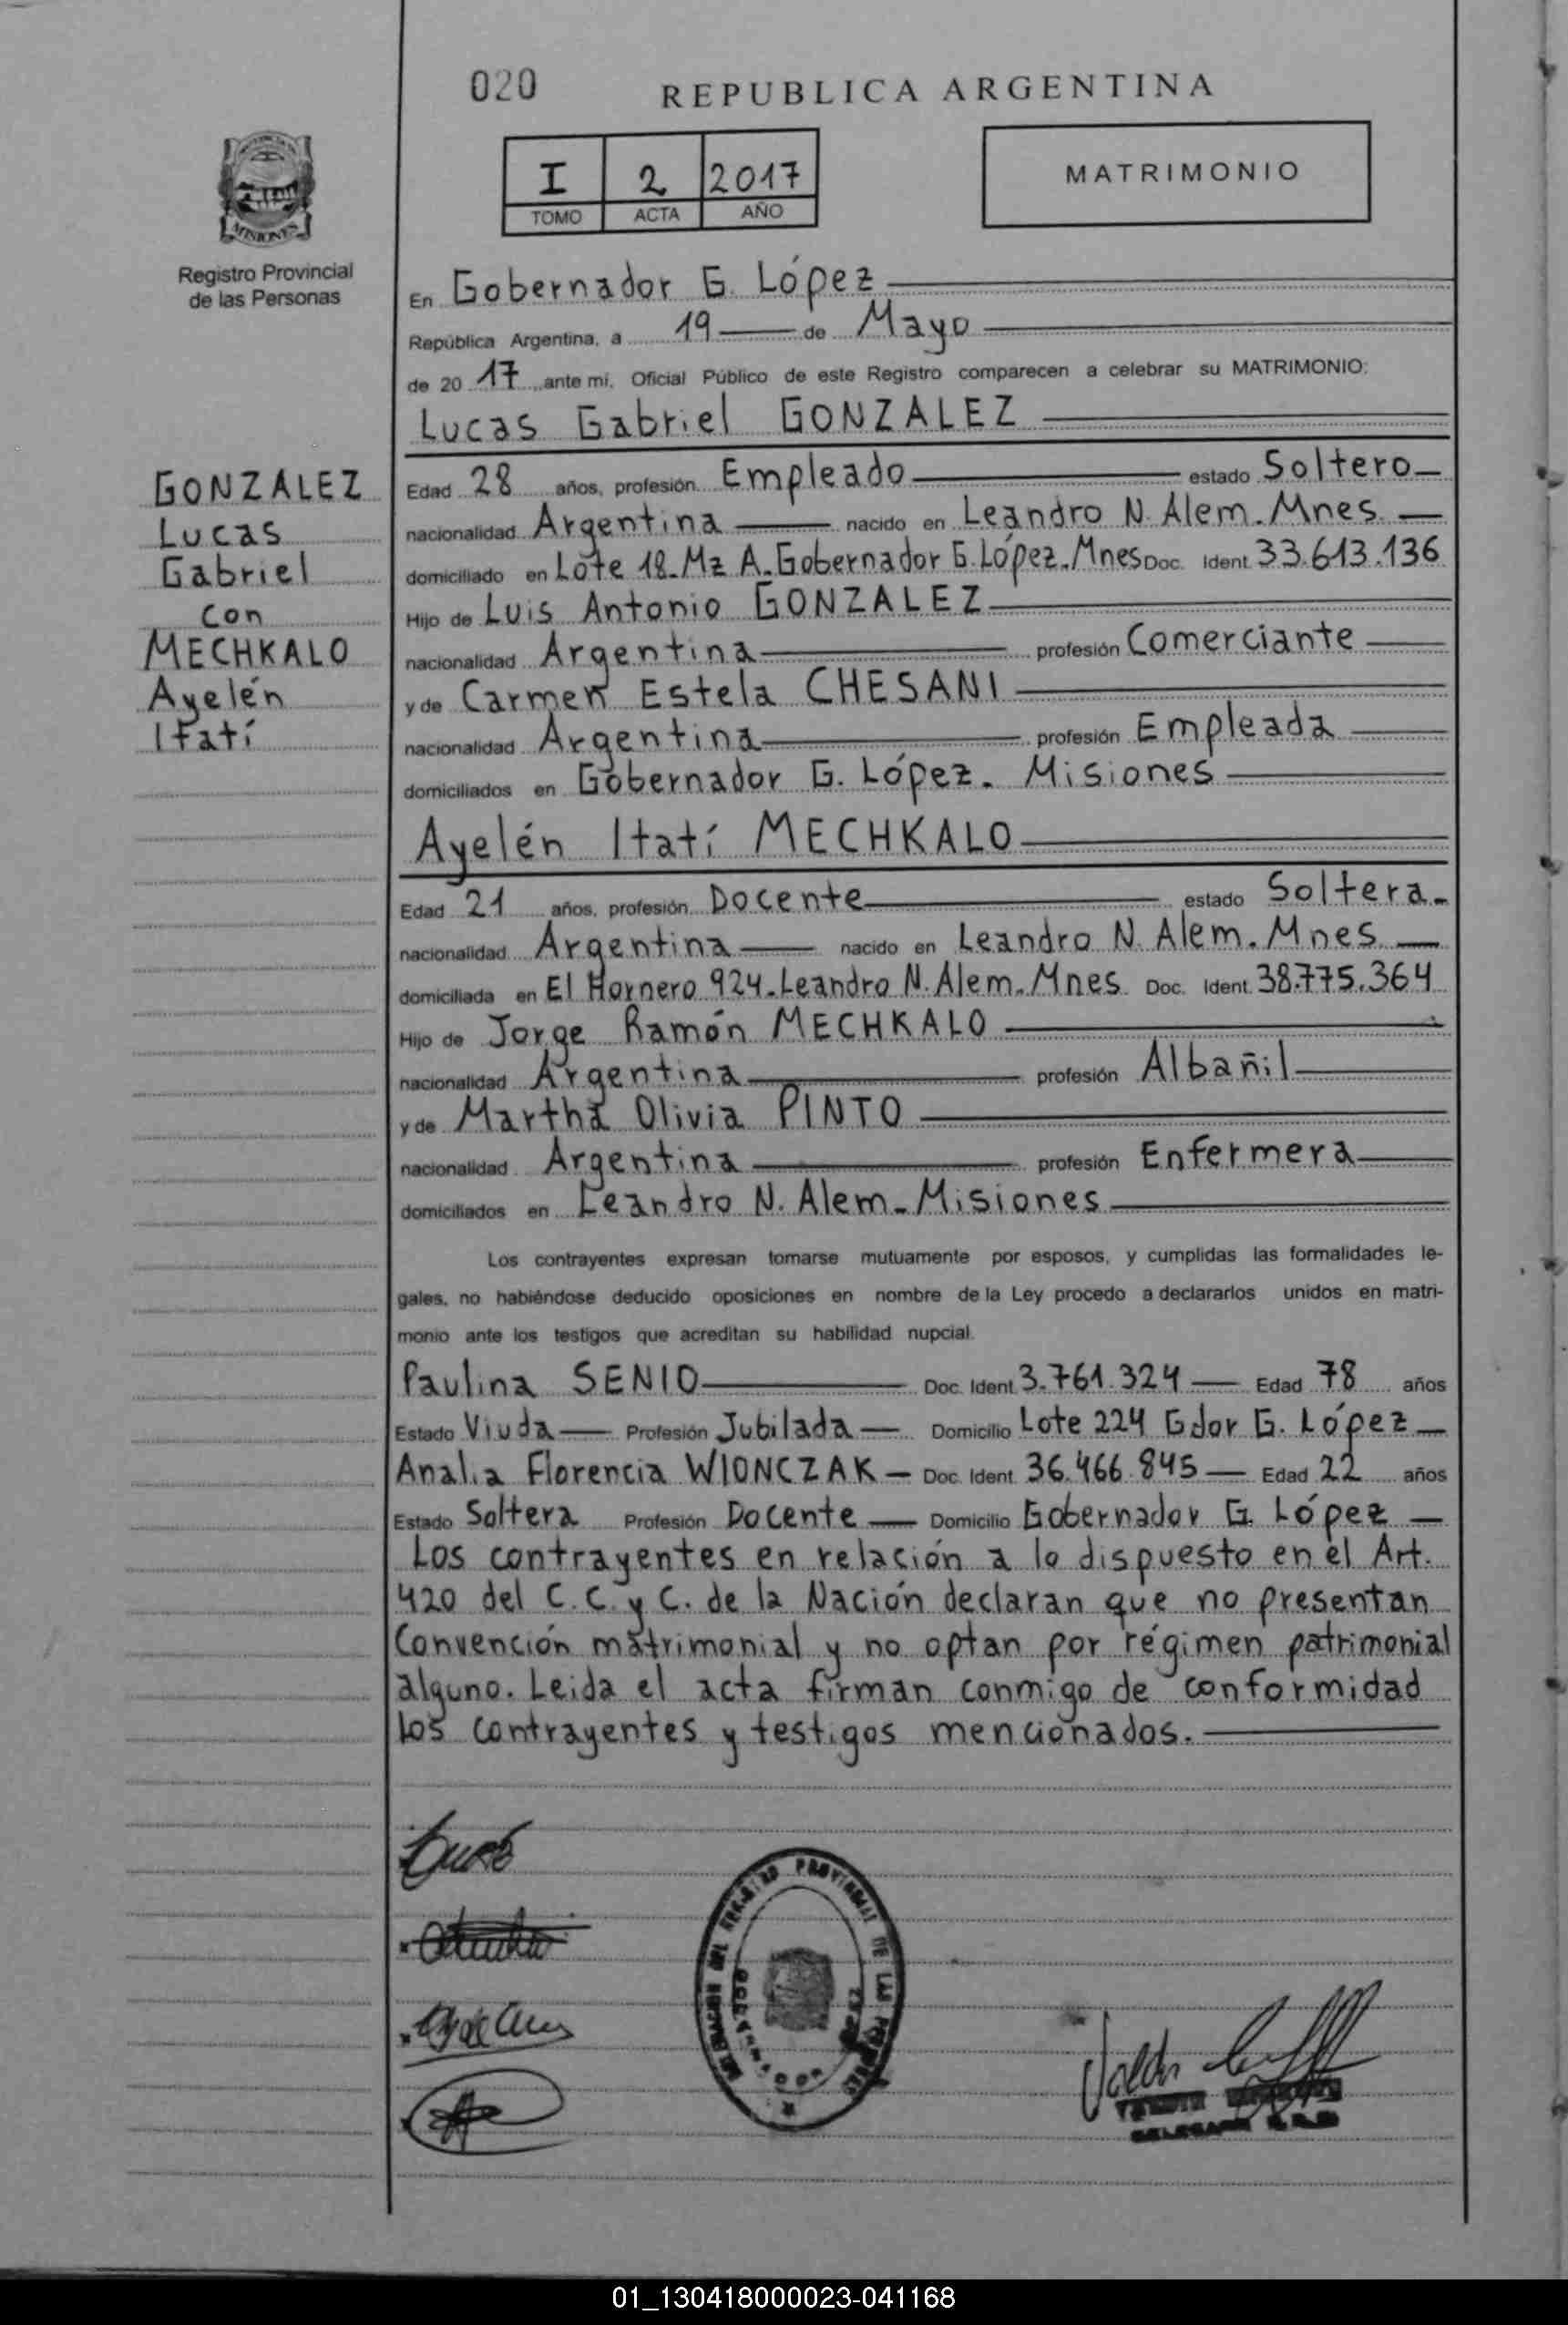 020
REPUBLICA ARGENTINA
I 2 2017
TOMO ACTA AÑO
MATRIMONIO
MISIONES
Registro Provincial
de las Personas
En Gobernador G. López
República Argentina, a 19 de Mayo
de 20 17 ante mi, Oficial Público de este Registro comparecen a celebrar su MATRIMONIO:
Lucas Gabriel GONZALEZ
GONZALEZ
Lucas
Gabriel
con
MECHKALO
Ayelén
Itatí
Edad 28 años, profesión Empleado estado Soltero
nacionalidad Argentina nacido en Leandro N. Alem. Mnes.
domiciliado en Lote 18. Mz A. Gobernador G. López. Mnes Doc. Ident. 33.613.136
Hijo de Luis Antonio GONZALEZ
nacionalidad Argentina profesión Comerciante
y de Carmen Estela CHESANI
nacionalidad Argentina profesión Empleada
domiciliados en Gobernador G. López. Misiones
Ayelén Itatí MECHKALO
Edad 21 años, profesión Docente estado Soltera.
nacionalidad Argentina nacido en Leandro N. Alem. Mnes.
domiciliada en El Hornero 924. Leandro N. Alem. Mnes. Doc. Ident. 38.775.364
Hijo de Jorge Ramón MECHKALO
nacionalidad Argentina profesión Albañil
y de Martha Olivia PINTO
nacionalidad Argentina profesión Enfermera
domiciliados en Leandro N. Alem. Misiones
Los contrayentes expresan tomarse mutuamente por esposos, y cumplidas las formalidades le-
gales, no habiéndose deducido oposiciones en nombre de la Ley procedo a declararlos unidos en matri-
monio ante los testigos que acreditan su habilidad nupcial.
Paulina SENIO Doc. Ident. 3.761.324 Edad 78 años
Estado Viuda Profesión Jubilada Domicilio Lote 224 Gdor G. López
Analia Florencia WIONCZAK Doc. Ident. 36.466.845 Edad 22 años
Estado Soltera Profesión Docente Domicilio Gobernador G. López
Los contrayentes en relación a lo dispuesto en el Art.
420 del C. C. y C. de la Nación declaran que no presentan
Convención matrimonial y no optan por régimen patrimonial
alguno. Leida el acta firman conmigo de conformidad
los contrayentes y testigos mencionados.
PROVINCIAL DE LAS
01_130418000023-041168